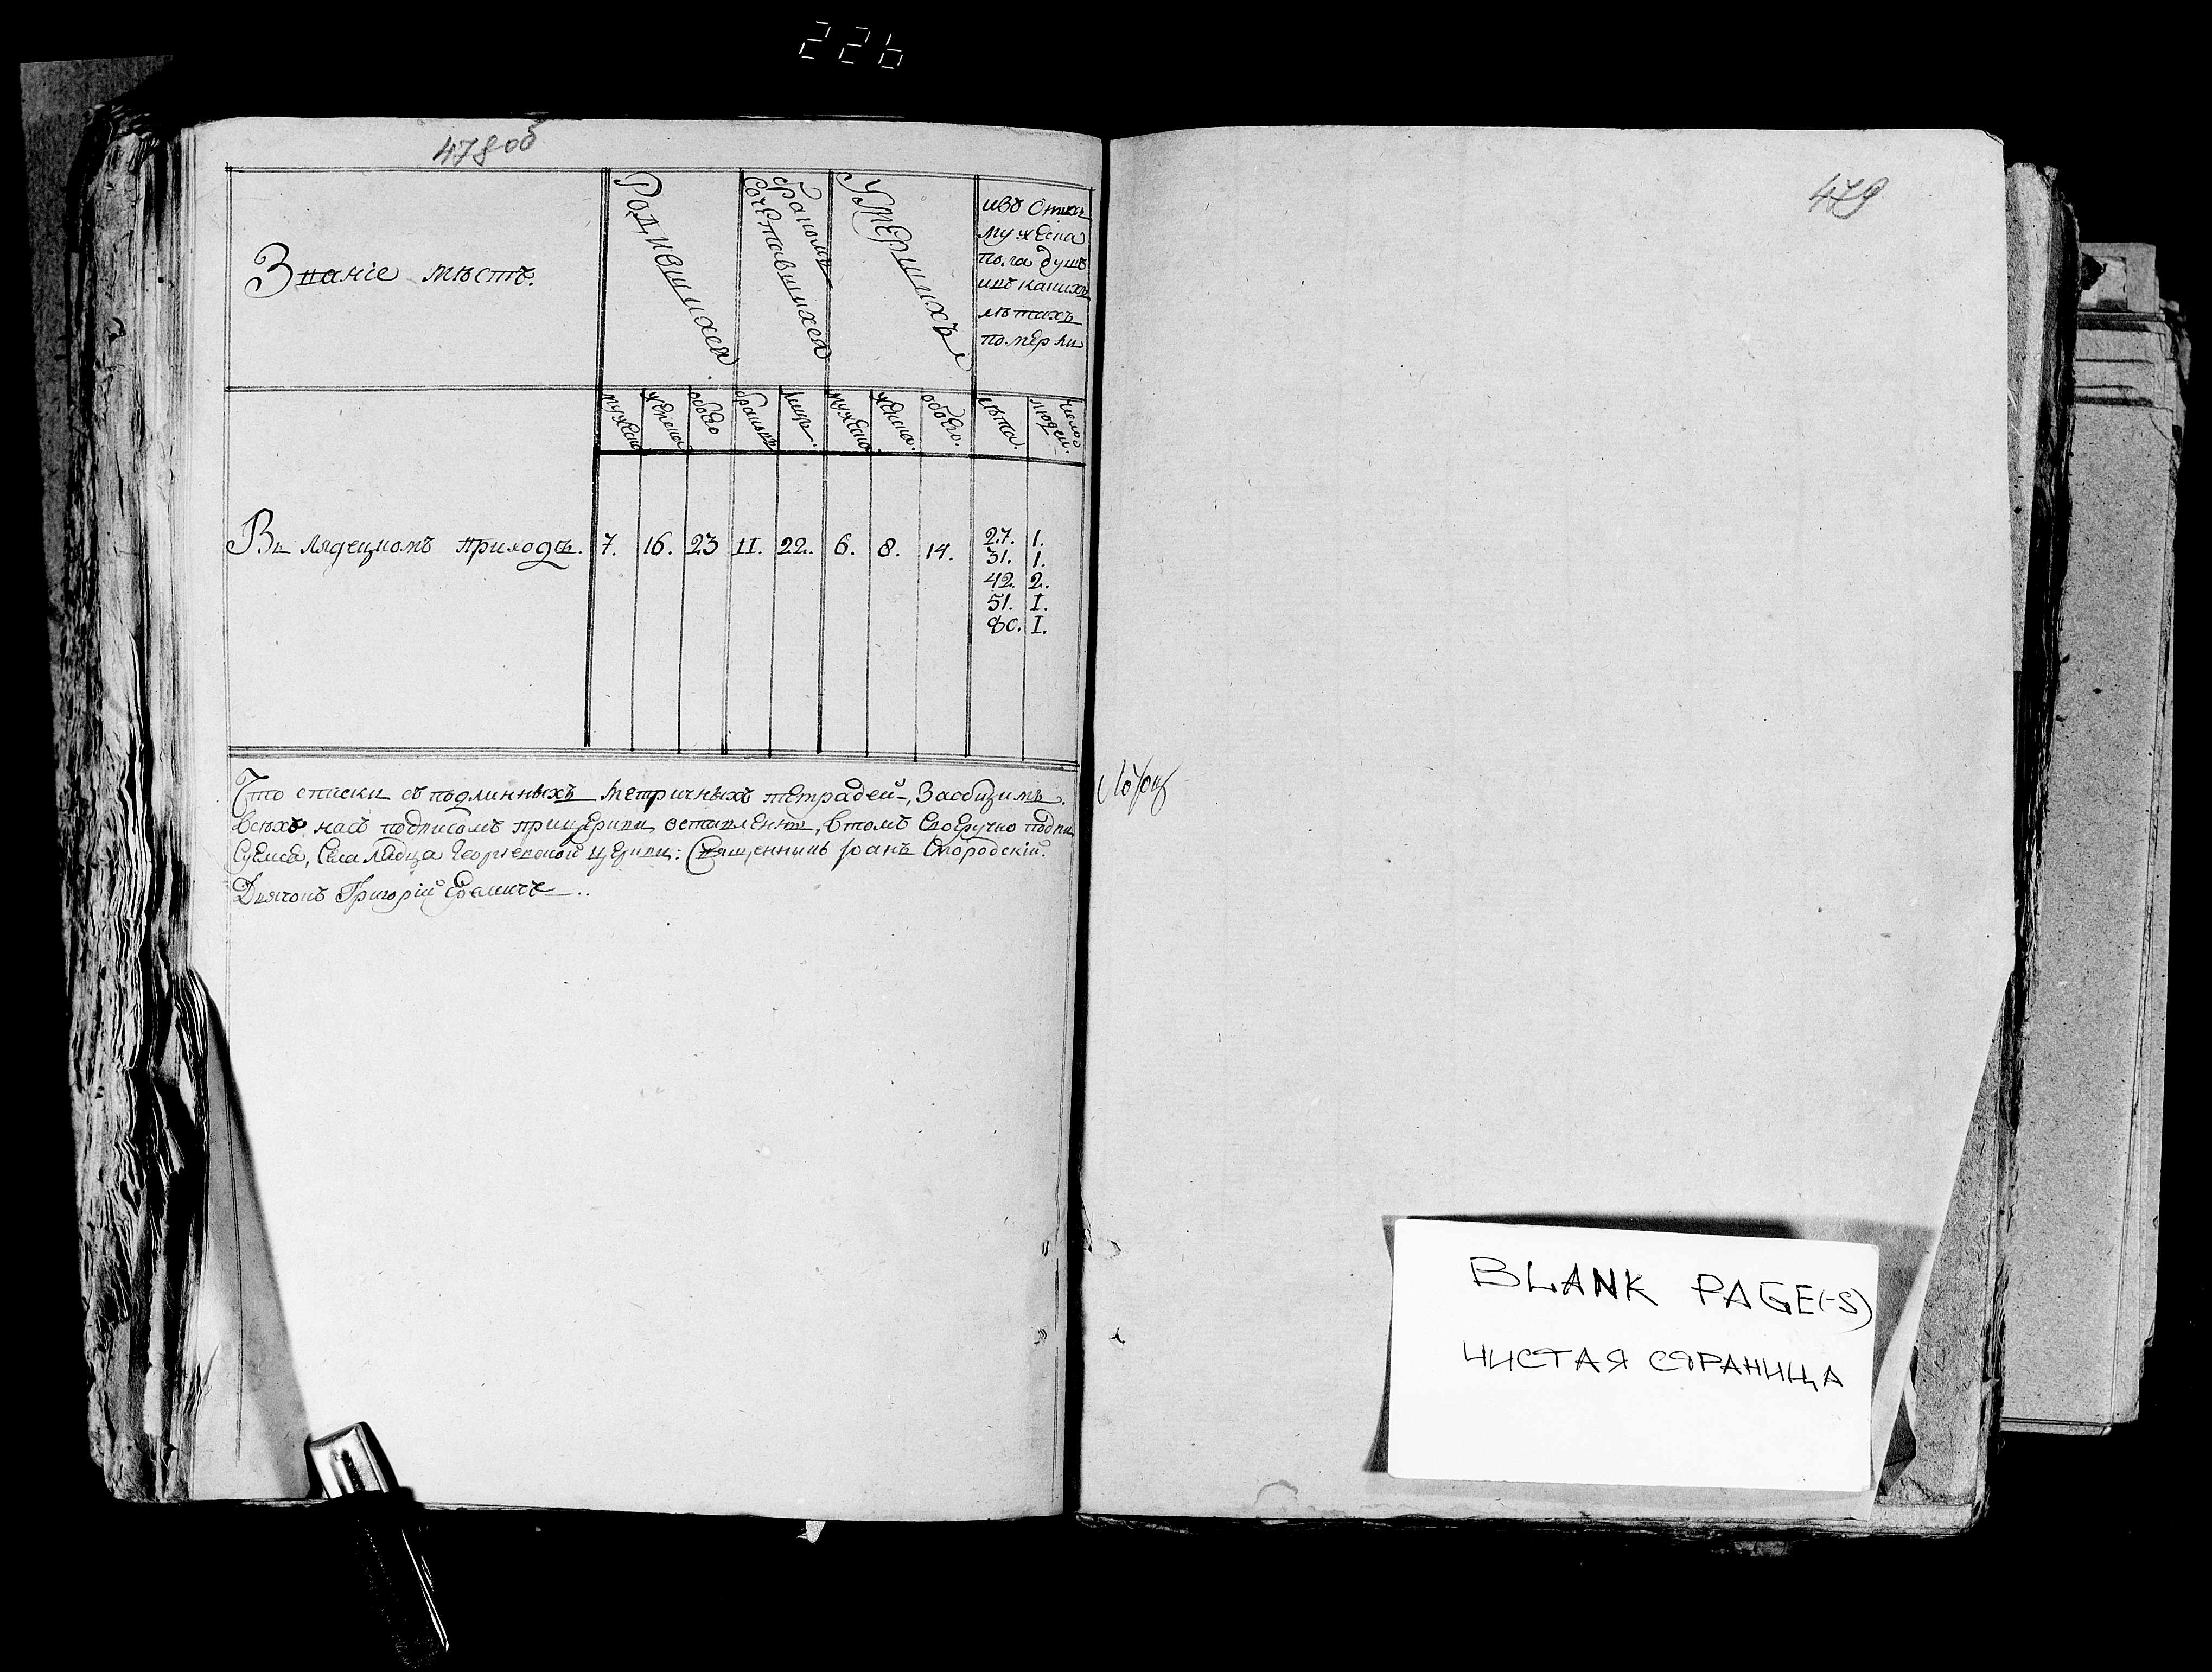 226
478 об
Званіе мѣстъ.
Родившихся
бракомъ Сочетавшихся
Умершихъ
мужеска
пола душъ
и въ какихъ
лѣтахъ
померли
мужеска женска обоего браковъ лицъ. мужеска женска. обоего. лѣта. число людей.
Въ лядецкомъ приходѣ. 7. 16. 23 11. 22. 6. 8. 14. 27. 1.
31. 1.
42. 2.
51. 1.
80. 1.
Что списки съ подлинныхъ метричныхъ тетрадей, Заобщимъ
всѣхъ насъ подписомъ прицеркви оставленны, втомъ Своеручно подпи
суемся, Села Лядца Георгіевской церкви: Священникъ Іоанъ
Дьячокъ Григорій
479
BLANK PAGE(-S)
ЧИСТАЯ СТРАНИЦА